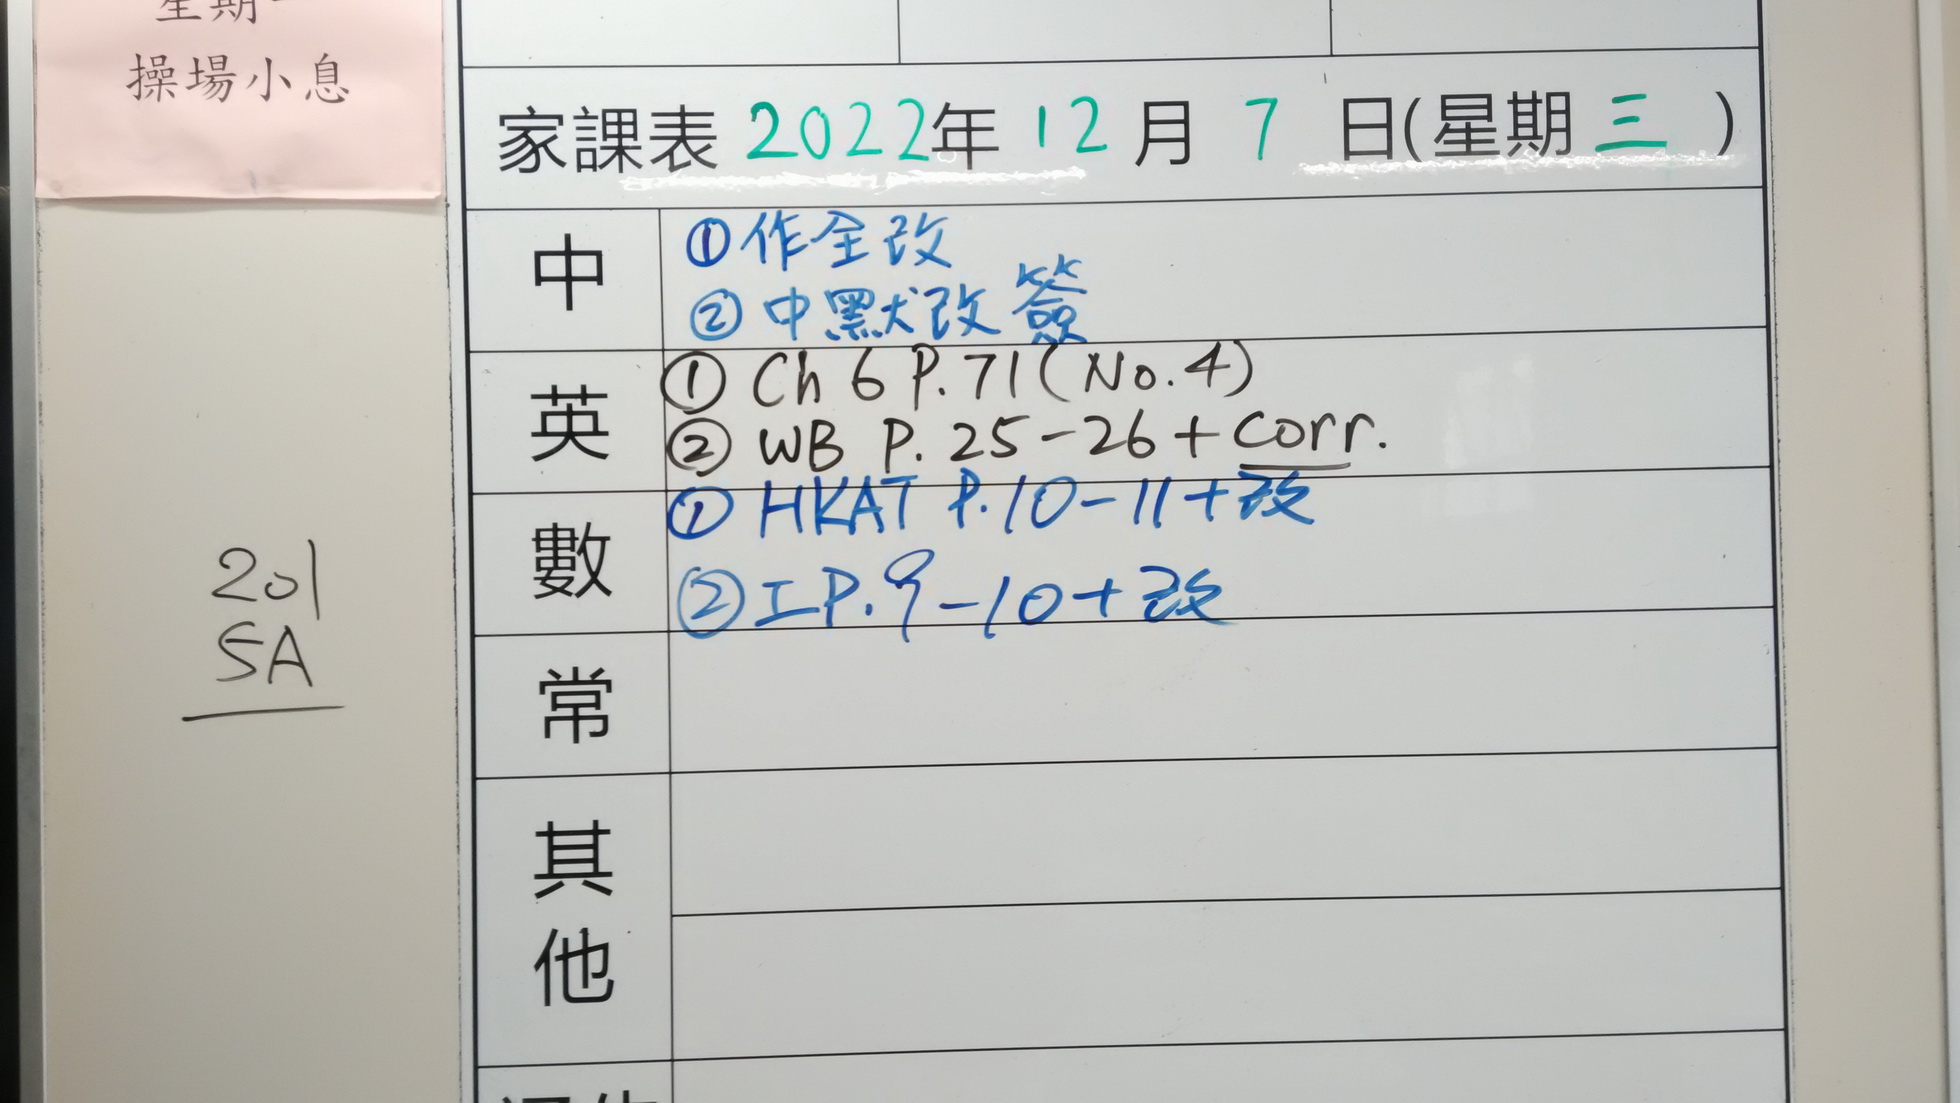 操場小息
家課表 2022年 12月 7 日(星期三)
中
①作全改
②中默改簽
英
① Ch 6 P.71(No.4)
② WB P. 25-26 + corr.
數
① HKAT P.10-11+改
②工P.9-10+改
常
其他
201
5A